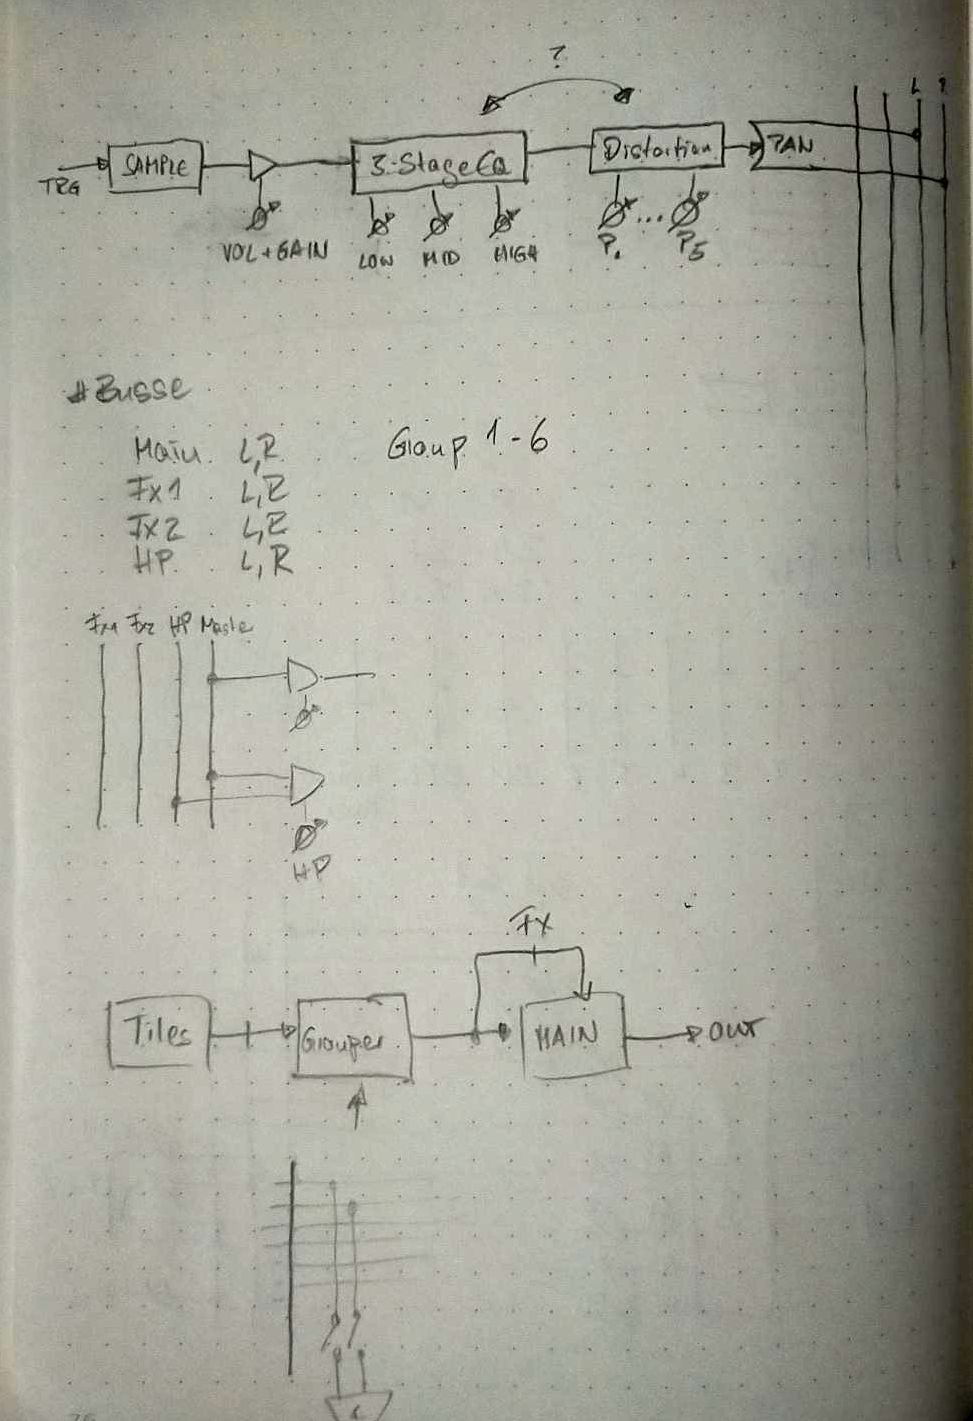 ?
L
TRG
SAMPLE
3-Stage EQ
Distortion
PAN
VOL + GAIN
LOW
MID
HIGH
P1
...
P5
#Busse
Main L,R
Group 1-6
Fx1 L,R
Fx2 L,R
HP L,R
Fx1 Fx2 HP Maste
HP
FX
Tiles
Grouper
MAIN
OUT